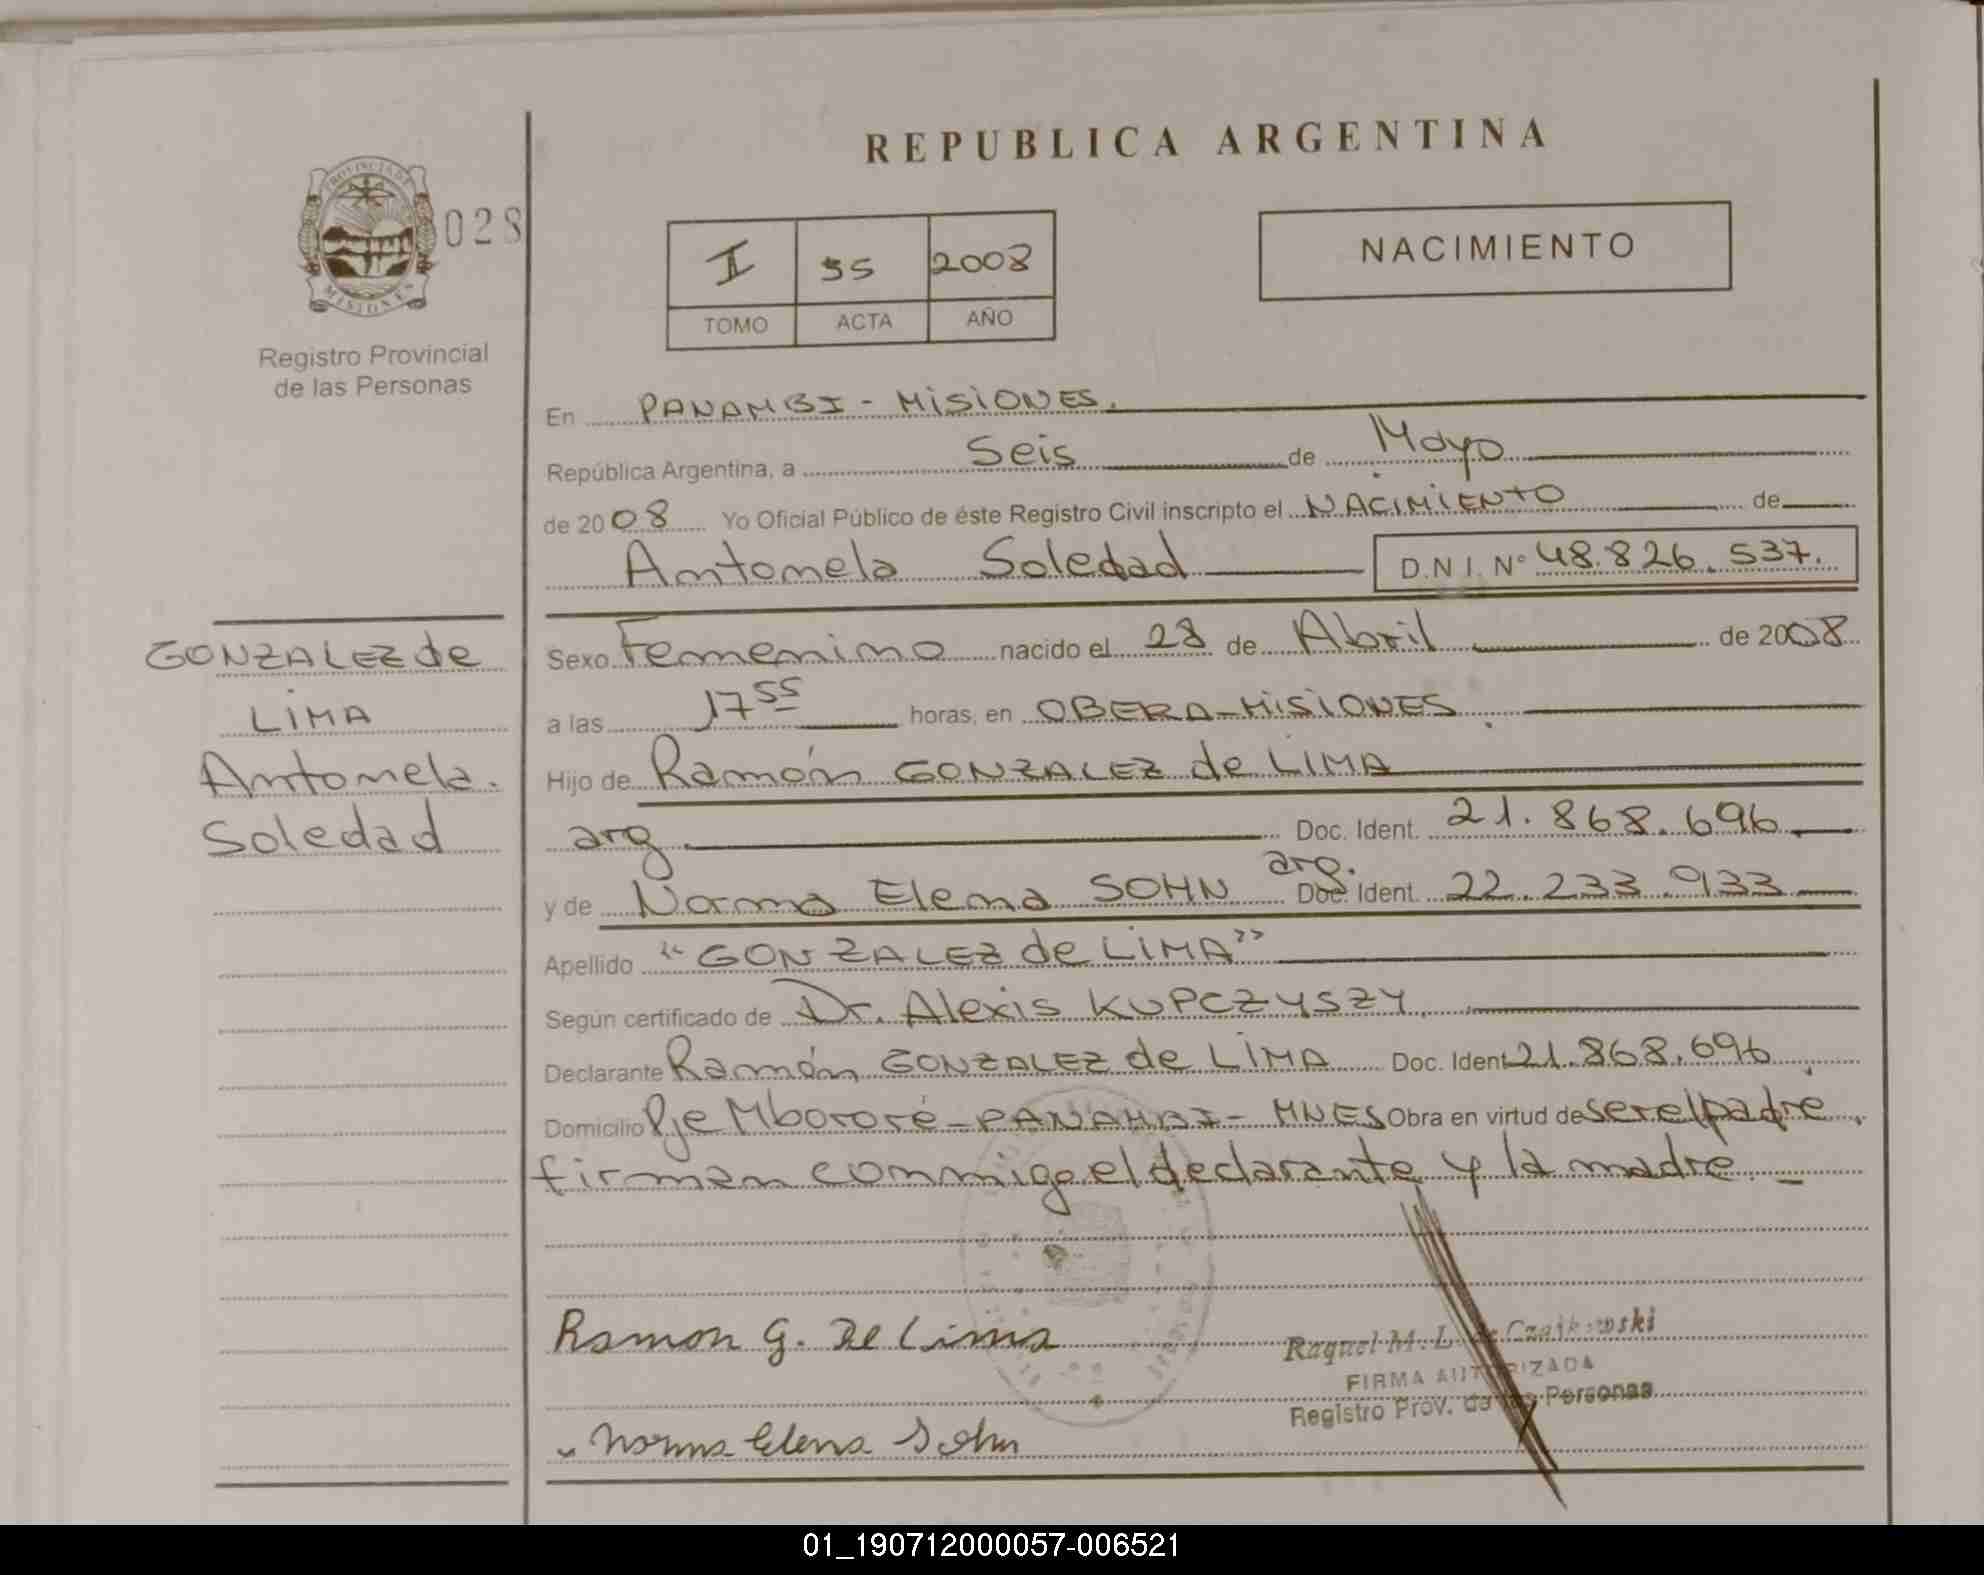 REPUBLICA ARGENTINA
PROVINCIA DE
MISIONES
028
Registro Provincial
de las Personas
I 55 2008
TOMO ACTA AÑO
NACIMIENTO
En PANAMBI - MISIONES.
República Argentina, a Seis de Mayo
de 2008 Yo Oficial Público de éste Registro Civil inscripto el NACIMIENTO de
Antonela Soledad D.N.I. Nº 48.826.537.
GONZALEZ de
LIMA
Antonela.
Soledad
Sexo Femenino nacido el 28 de Abril de 2008
a las 17 55 horas, en OBERA - MISIONES.
Hijo de Ramón GONZALEZ de LIMA
arg. Doc. Ident. 21.868.696
y de Norma Elena SOHN arg. Doc. Ident. 22.233.933
Apellido "GONZALEZ de LIMA"
Según certificado de Dr. Alexis KUPCZYSZY.
Declarante Ramón GONZALEZ de LIMA Doc. Ident 21.868.696.
Domicilio Pje Mbororé - PANAMBI - MNES Obra en virtud de ser el padre,
firman conmigo el declarante y la madre. -
Ramon G. De Lima
Raquel M. L. de Czajkowski
FIRMA AUTORIZADA
Registro Prov. de las Personas
Norma Elena Sohn
01_190712000057-006521